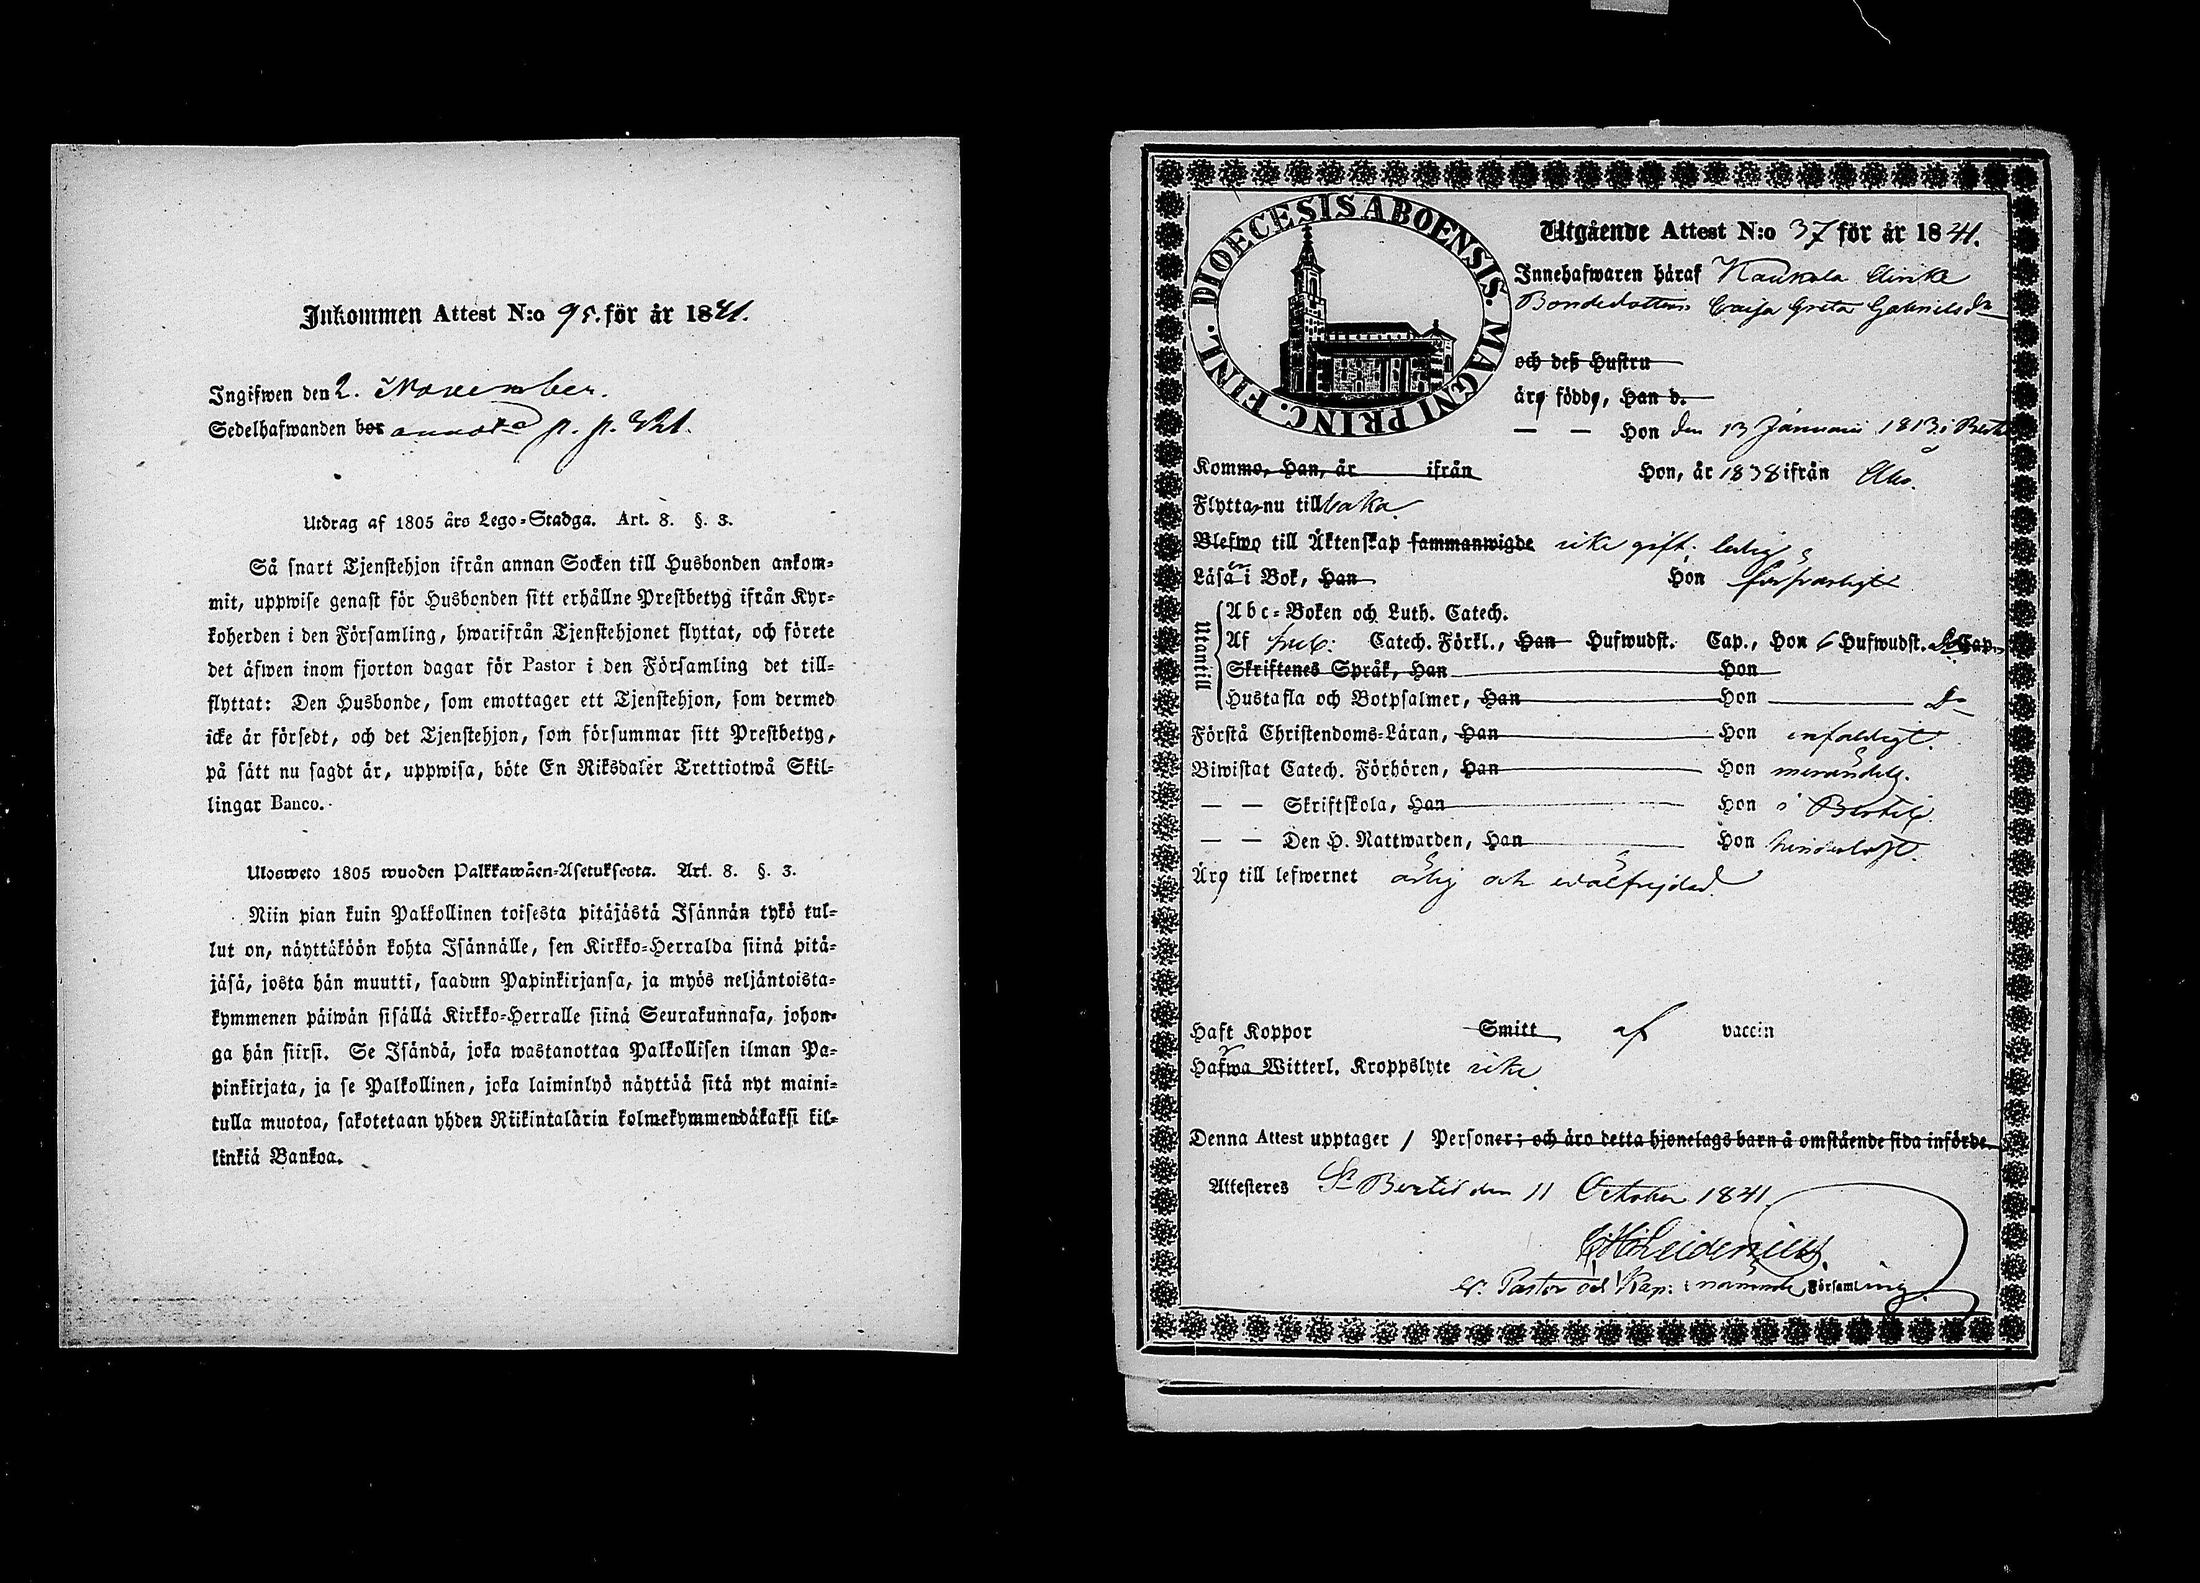 Inkommen Attest N:o 95. för år 1841.
Ingifwen den 2. November.
Sedelhafwanden bor p. p.
Utdrag af 1805 års Lego-Stadga. Art. 8. §. 3.
Så snart Tjenstehjon ifrån annan Socken till Husbonden ankom-
mit, uppwise genast för Husbonden sitt erhållne Prestbetyg ifrån Kyr-
koherden i den Församling, hwarifrån Tjenstehjonet flyttat, och förete
det äfwen inom fjorton dagar för Pastor i den Församling det till-
flyttat: Den Husbonde, som emottager ett Tjenstehjon, som dermed
icke är försedt, och det Tjenstehjon, som försummar sitt Prestbetyg,
på sätt nu sagdt är, uppwisa, böte En Riksdaler Trettiotwå Skil-
lingar Banco.
Ulosweto 1805 wuoden Palkkawäen-Asetuksesta. Art. 8. §. 3.
Niin pian kuin Palkollinen toisesta pitäjästä Isännän tykö tul-
lut on, näyttäköön kohta Isännälle, sen Kirkko-Herralda siinä pitä-
jäsä, josta hän muutti, saadun Papinkirjansa, ja myös neljäntoista-
kymmenen päiwän sisällä Kirkko-Herralle siinä Seurakunnasa, johon-
ga hän siirsi. Se Isändä, joka wastanottaa Palkollisen ilman Pa-
pinkirjata, ja se Palkollinen, joka laiminlyö näyttää sitä nyt maini-
tulla muotoa, sakotetaan yhden Riikintalärin kolmekymmendäkaksi kil-
linkiä Bankoa.
DIOECESIS ABOENSIS. MAGNI PRINC. FINL.
Utgående Attest N:o 37 för år 1841.
Innehafwaren häraf Kaukola
Bondedottren Caisa Greta Gabrielsdr
och deß Hustru
äro födde, Han d.
— — Hon den 13 Januari 1813 i
Kommo, Han, år ifrån Hon, år 1838 ifrån Åbo.
Flytta nu till baka.
Blefwo till Äktenskap sammanwigde icke gift; ledig
Läsa i Bok, Han Hon försvarligt
Utantill
Abc-Boken och Luth. Catech.
Af Catech. Förkl., Han Hufwudst. Cap., Hon 6 Hufwudst. Cap.
Skriftenes Språk, Han Hon
Hustafla och Botpsalmer, Han Hon Do
Förstå Christendoms-Läran, Han Hon enfaldigt.
Biwistat Catech. Förhören, Han Hon
— — Skriftskola, Han Hon i Bertils.
— — Den H. Nattwarden, Han Hon hinderlöst.
Äro till lefwernet ärlig och wälfrejdad
Haft Koppor Smitt af vaccin
Hafwa Witterl. Kroppslyte icke
Denna Attest upptager 1 Personer; och äro detta hjonelags barn å omstående sida införde.
Attesteres St Bertils den 11 October 1841.
Heidenius
V. Pastor och Kap: i nämnde Församling.